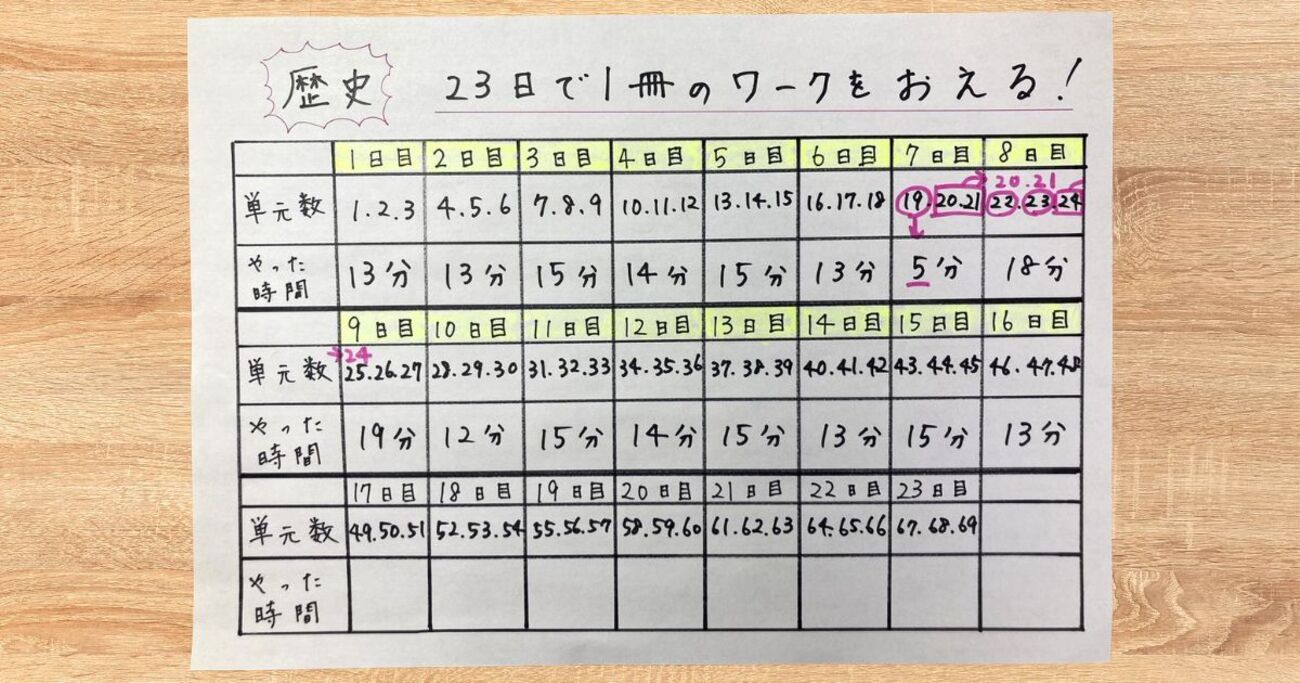 歴史 23日で1冊のワークをおえる!
1日目 2日目 3日目 4日目 5日目 6日目 7日目 8日目
20.21
単元数 1.2.3 4.5.6 7.8.9 10.11.12 13.14.15 16.17.18 19.20.21 22.23.24
やった時間 13分 13分 15分 14分 15分 13分 5分 18分
9日目 10日目 11日目 12日目 13日目 14日目 15日目 16日目
24
単元数 25.26.27 28.29.30 31.32.33 34.35.36 37.38.39 40.41.42 43.44.45 46.47.48
やった時間 19分 12分 15分 14分 15分 13分 15分 13分
17日目 18日目 19日目 20日目 21日目 22日目 23日目
単元数 49.50.51 52.53.54 55.56.57 58.59.60 61.62.63 64.65.66 67.68.69
やった時間